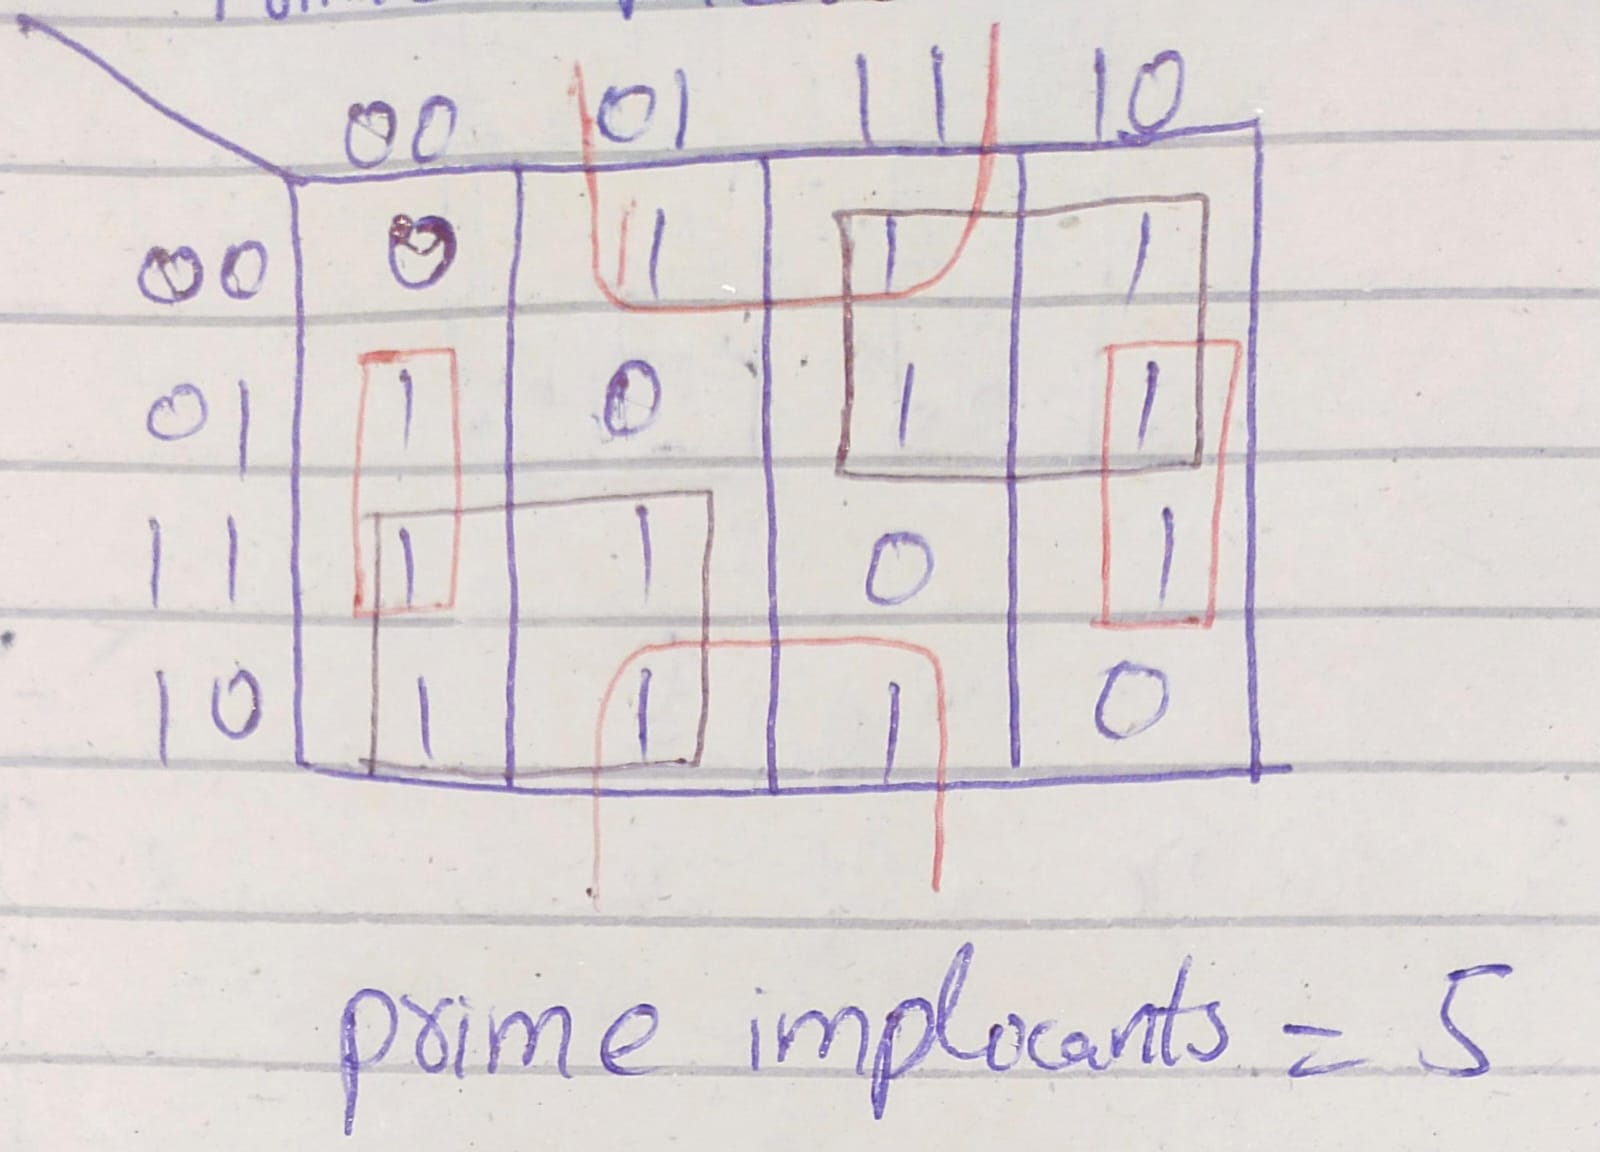 00 01 11 10
00 0 1 1 1
01 1 0 1 1
11 1 1 0 1
10 1 1 1 0
prime implocants = 5